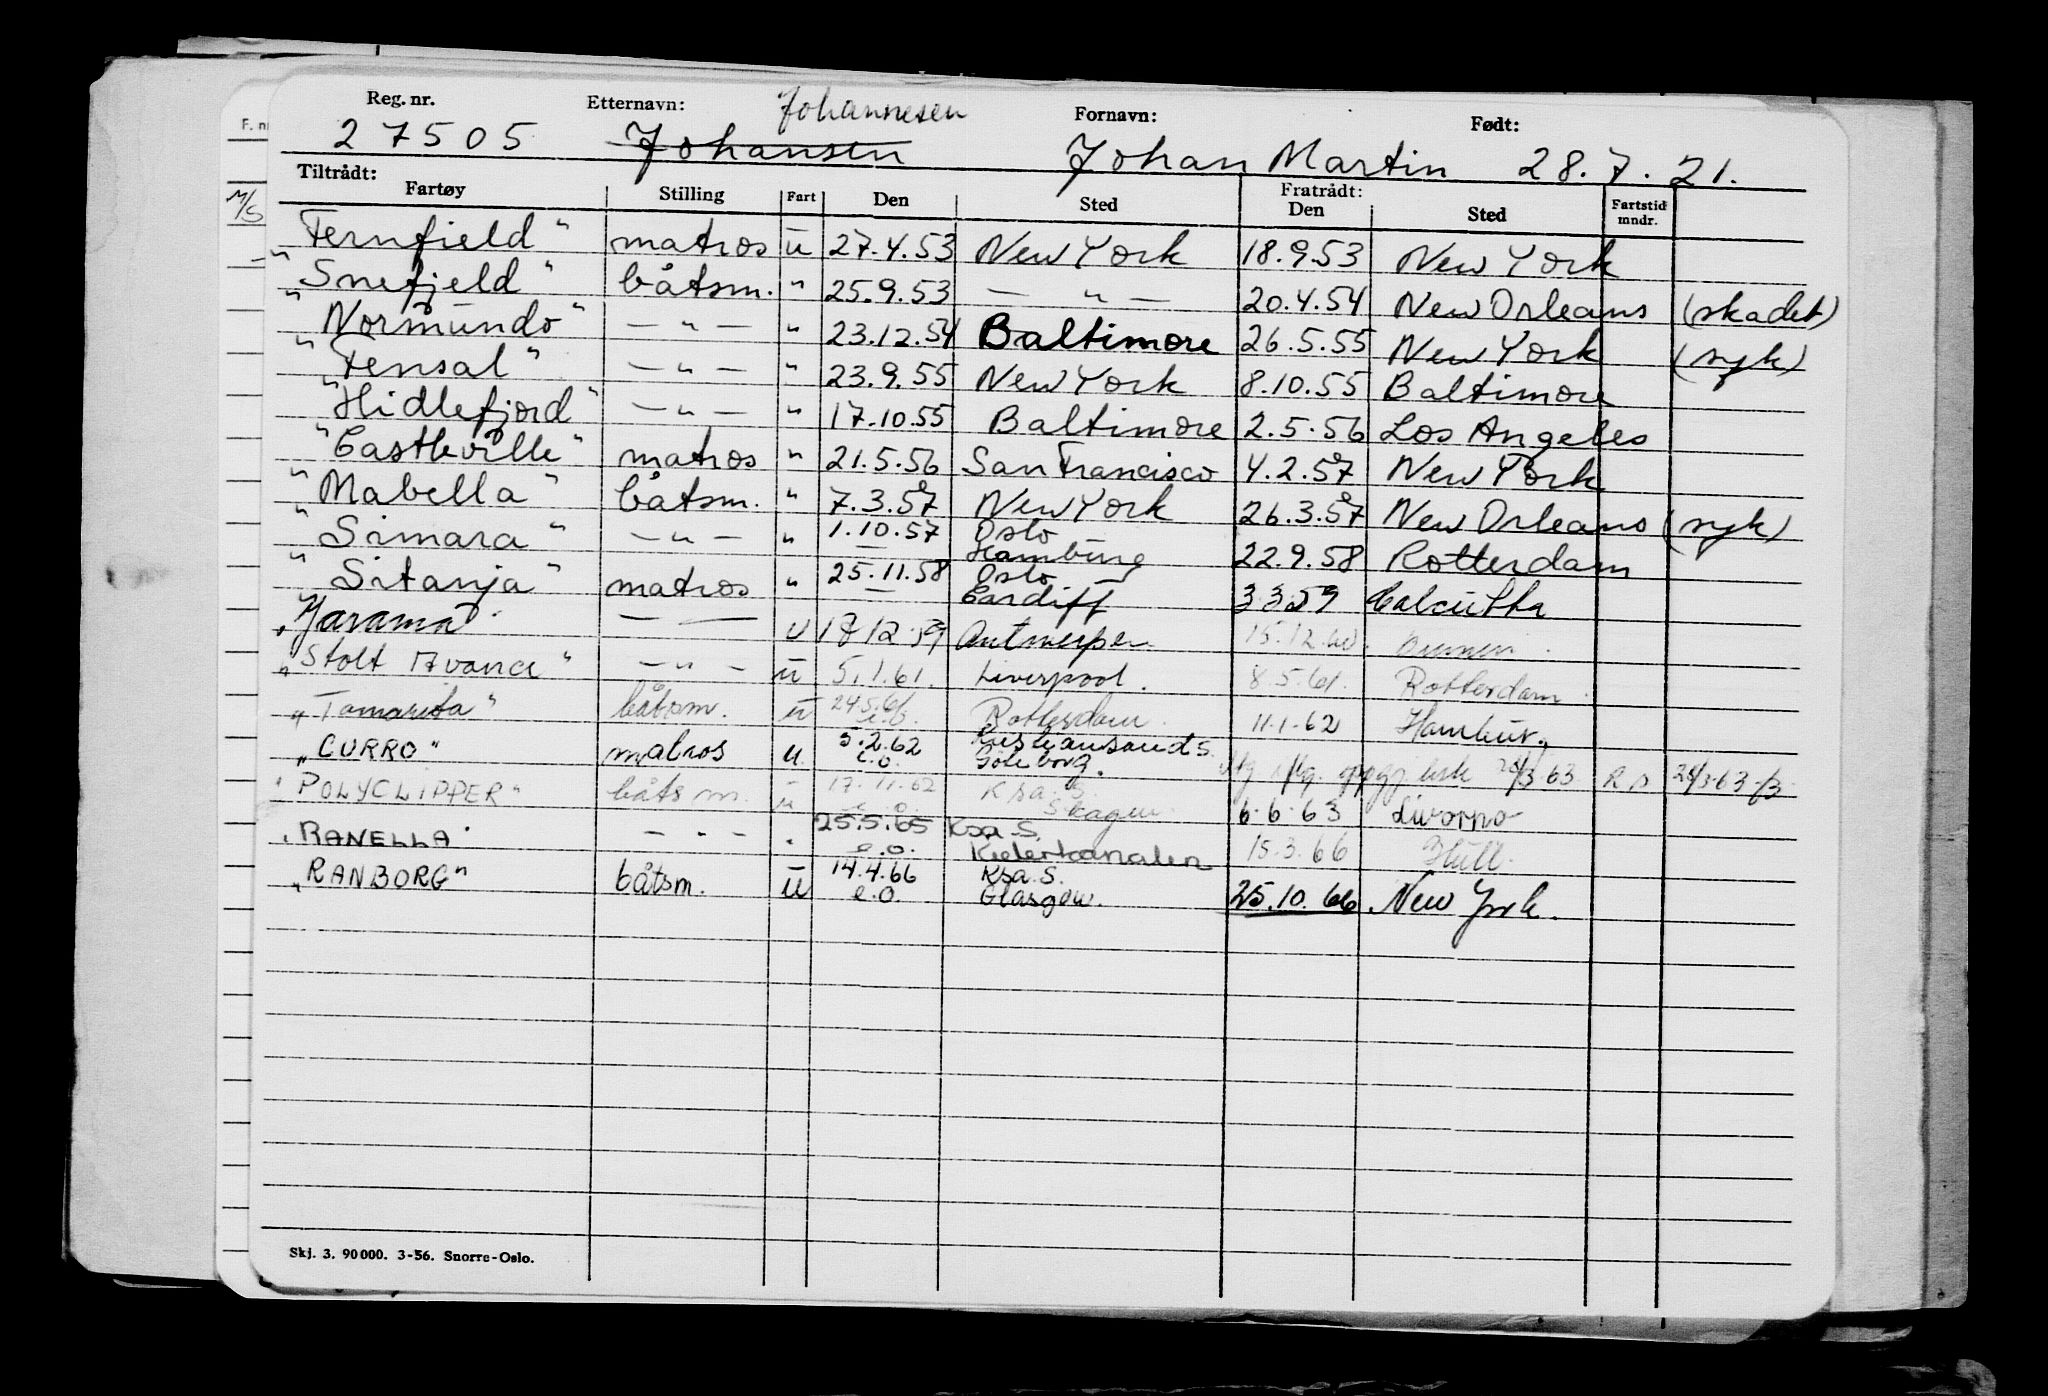 Reg. nr. Etternavn: Johannesen Fornavn: Født:
27505 Johansen Johan Martin 28.7.21.
Tiltrådt: Fratrådt:
Fartøy Stilling Fart Den Sted Den Sted Fartstid mndr.
F. n
M/S
"Fernfield" matros u 27.4.53 New York 18.9.53 New York
"Snefjeld" båtsm. " 25.9.53 — " — 20.4.54 New Orleans (skadet)
"Normundo" — " — " 23.12.54 Baltimore 26.5.55 New York (syk)
"Fensal" — " — " 23.9.55 New York 8.10.55 Baltimore
"Hidlefjord" — " — " 17.10.55 Baltimore 2.5.56 Los Angeles
"Castleville" matros " 21.5.56 San Francisco 4.2.57 New York
"Mabella" båtsm. " 7.3.57 New York 26.3.57 New Orleans (syk)
"Simara" — " — " 1.10.57 Oslo Hamburg 22.9.58 Rotterdam
"Sitanja" matros " 25.11.58 Oslo Cardiff 3.3.59 Calcutta
"Jarama" — — u 18.12.59 Antwerpen 15.12.60
"Stolt Avance" — " — u 5.1.61. Liverpool. 8.5.61. Rotterdam
"Tamarita" båtsm. u 24.5.61 e.o. Rotterdam. 11.1.62 Hamburg
"CURRO" matros u. 5.2.62 e.o. Kristiansand S. Göteborg. 28/3.63 28/3.63
"POLYCLIPPER" båtsm. u 17.11.62 e.o. Ksa. S. Skagen 6.6.63 Livorno
"RANELLA" — " — " 25.5.65 e.o. Ksa. S. Kielerkanalen 15.3.66 Hull.
"RANBORG" båtsm. u 14.4.66 e.o. Ksa. S. Glasgow. 25.10.66 New York.
Skj. 3. 90000. 3-56. Snorre-Oslo.